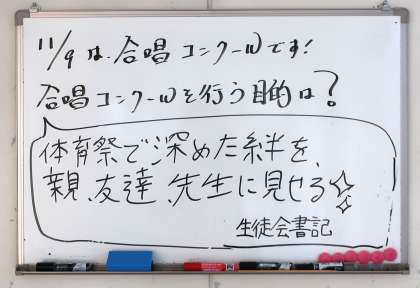 11/9は、合唱コンクールです!
合唱コンクールを行う目的は?
体育祭で深めた絆を、
親、友達、先生に見せる☆
生徒会書記